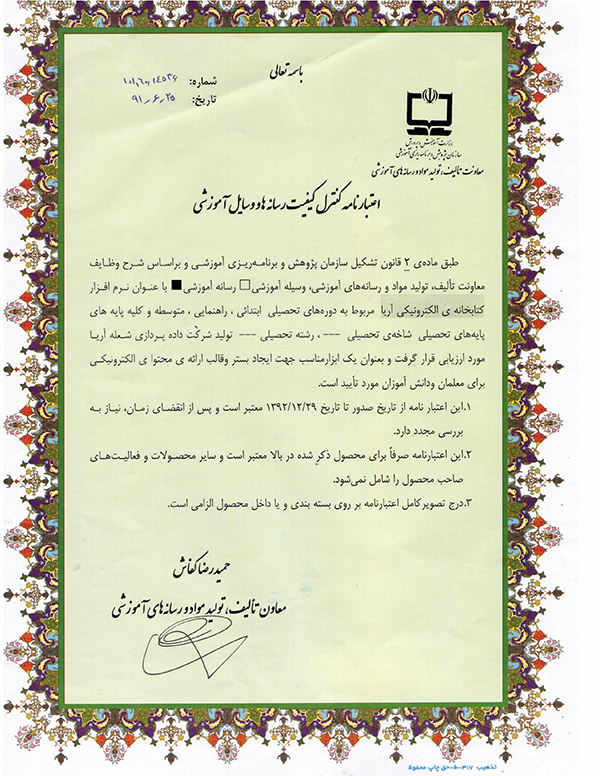 باسمه تعالی
شماره: ۱۰۱٫۶۰٫۱۴۵۳۶
تاریخ: ۹۱ـ۶ـ۲۵
وزارت آموزش و پرورش
سازمان پژوهش و برنامه ریزی آموزشی
معاونت تألیف، تولید مواد و رسانه های آموزشی
اعتبارنامه کنترل کیفیت رسانه ها و وسایل آموزشی
طبق ماده‌ی ۲ قانون تشکیل سازمان پژوهش و برنامه‌ریزی آموزشی و براساس شرح وظایف
معاونت تألیف، تولید مواد و رسانه‌های آموزشی، وسیله آموزشی□ رسانه آموزشی■ با عنوان نرم افزار
کتابخانه ی الکترونیکی آریا مربوط به دوره‌های تحصیلی ابتدائی ، راهنمایی ، متوسطه و کلیه پایه های
پایه‌های تحصیلی شاخه‌ی تحصیلی ---، رشته تحصیلی --- تولید شرکت داده پردازی شعله آریا
مورد ارزیابی قرار گرفت و بعنوان یک ابزارمناسب جهت ایجاد بستر وقالب ارائه ی محتوا ی الکترونیکی
برای معلمان ودانش آموزان مورد تأیید است.
۱.این اعتبار نامه از تاریخ صدور تا تاریخ ۱۳۹۲/۱۲/۲۹ معتبر است و پس از انقضای زمان، نیاز به
بررسی مجدد دارد.
۲.این اعتبارنامه صرفاً برای محصول ذکر شده در بالا معتبر است و سایر محصولات و فعالیت‌های
صاحب محصول را شامل نمی‌شود.
۳.درج تصویرکامل اعتبارنامه بر روی بسته بندی و یا داخل محصول الزامی است.
حمیدرضا کفاش
معاون تألیف، تولید مواد و رسانه های آموزشی
تذهیب ۳۱۷-ط-حق چاپ محفوظ